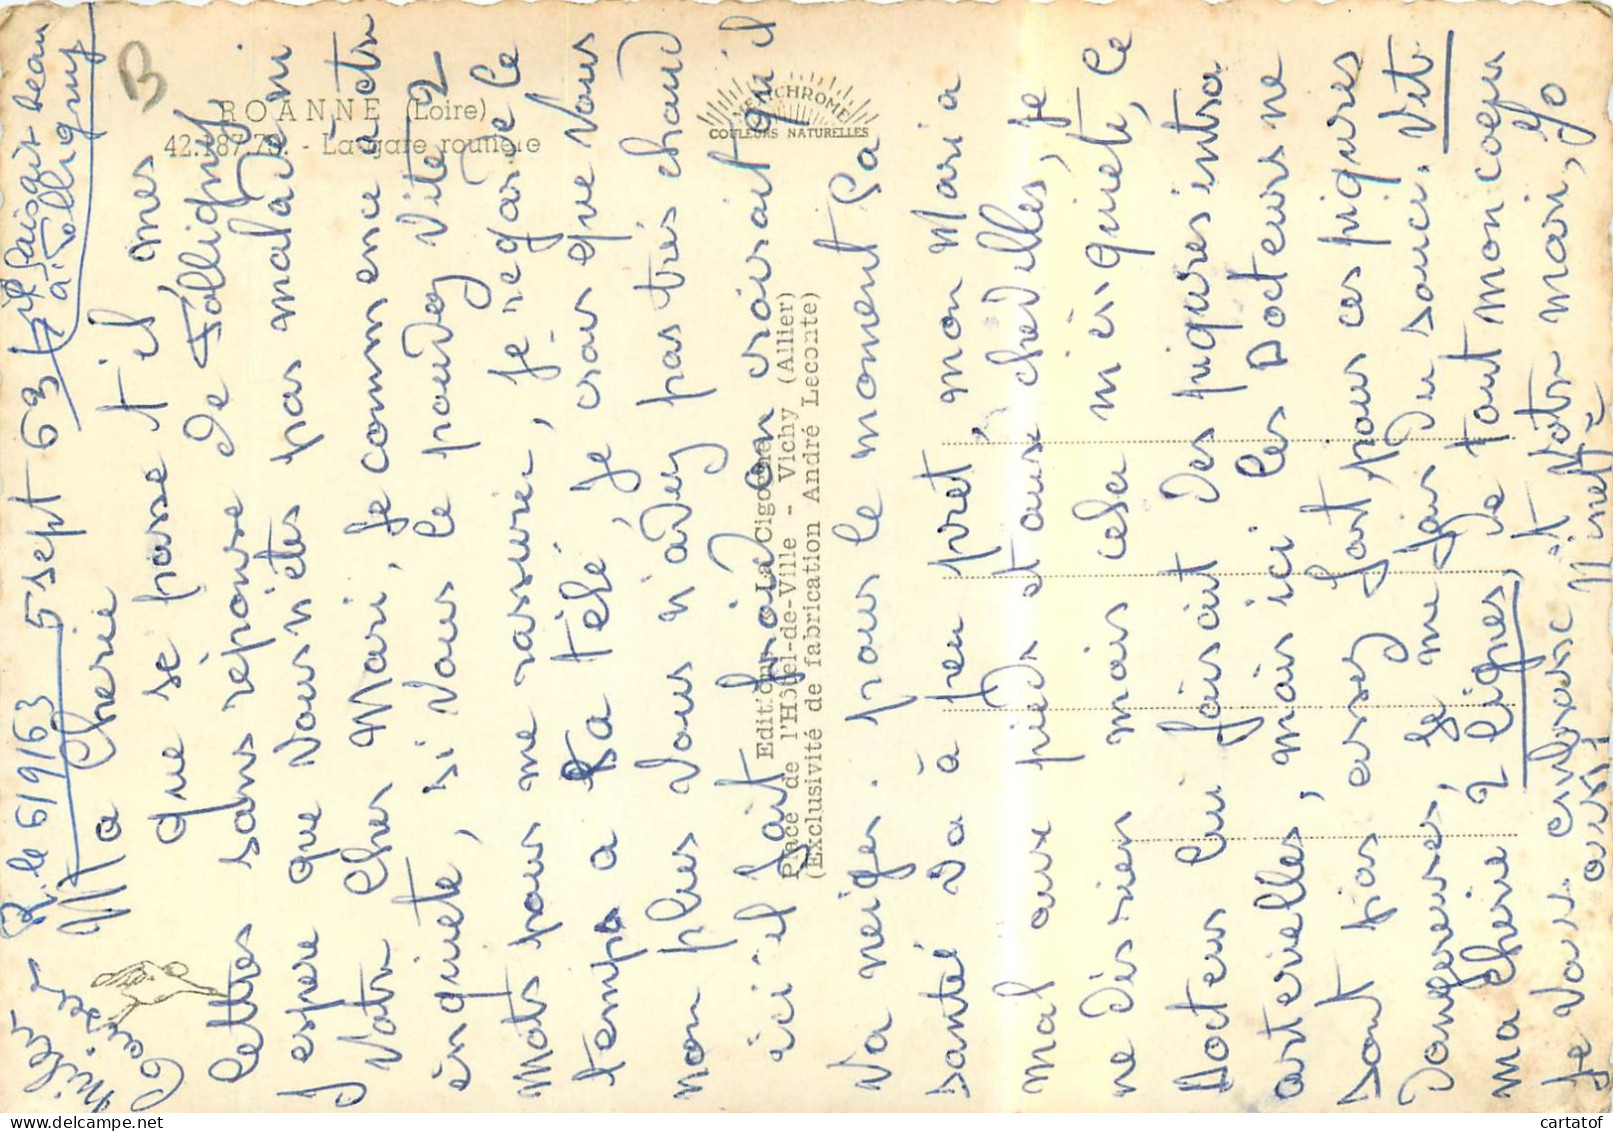 ROANNE (Loire)
42.187.79. - La gare routière
B
YVENCHROME
COULEURS NATURELLES
Editions "La Cigogne"
Place de l'Hôtel-de-Ville - Vichy (Allier)
(Exclusivité de fabrication André Leconte)
R. le 6/9/63 5 sept 63
il faisait beau
à Folligny
Ma Cherie
que se passe t'il, mes
lettres sans réponse de Folligny
J espere que vous n'étes pas malade ni
Votre Cher Mari, Je commence a etre
inquiete, si vous le pouvez vite 2
Mots pour me rassurer, Je regarde le
temps a la télé, Je crois que vous
non plus vous n'avez pas trés chaud
ici il fait froid on croirait qu'il
Va neiger. pour le moment Ca
santé va à peu prét, mon Mari a
mal aux pieds et aux chevilles, Je
ne dis rien mais cela m'inquiete, le
Docteur lui faisait des piqures intra
arterielles, mais ici les Docteurs ne
sont pas assez fort pour ces piqures
Dangereuses, Je me fais du souci. Vite
ma Cherie 2 lignes, de tout mon coeur
Je vous embrasse et votre mari, Yo
aussi Minette